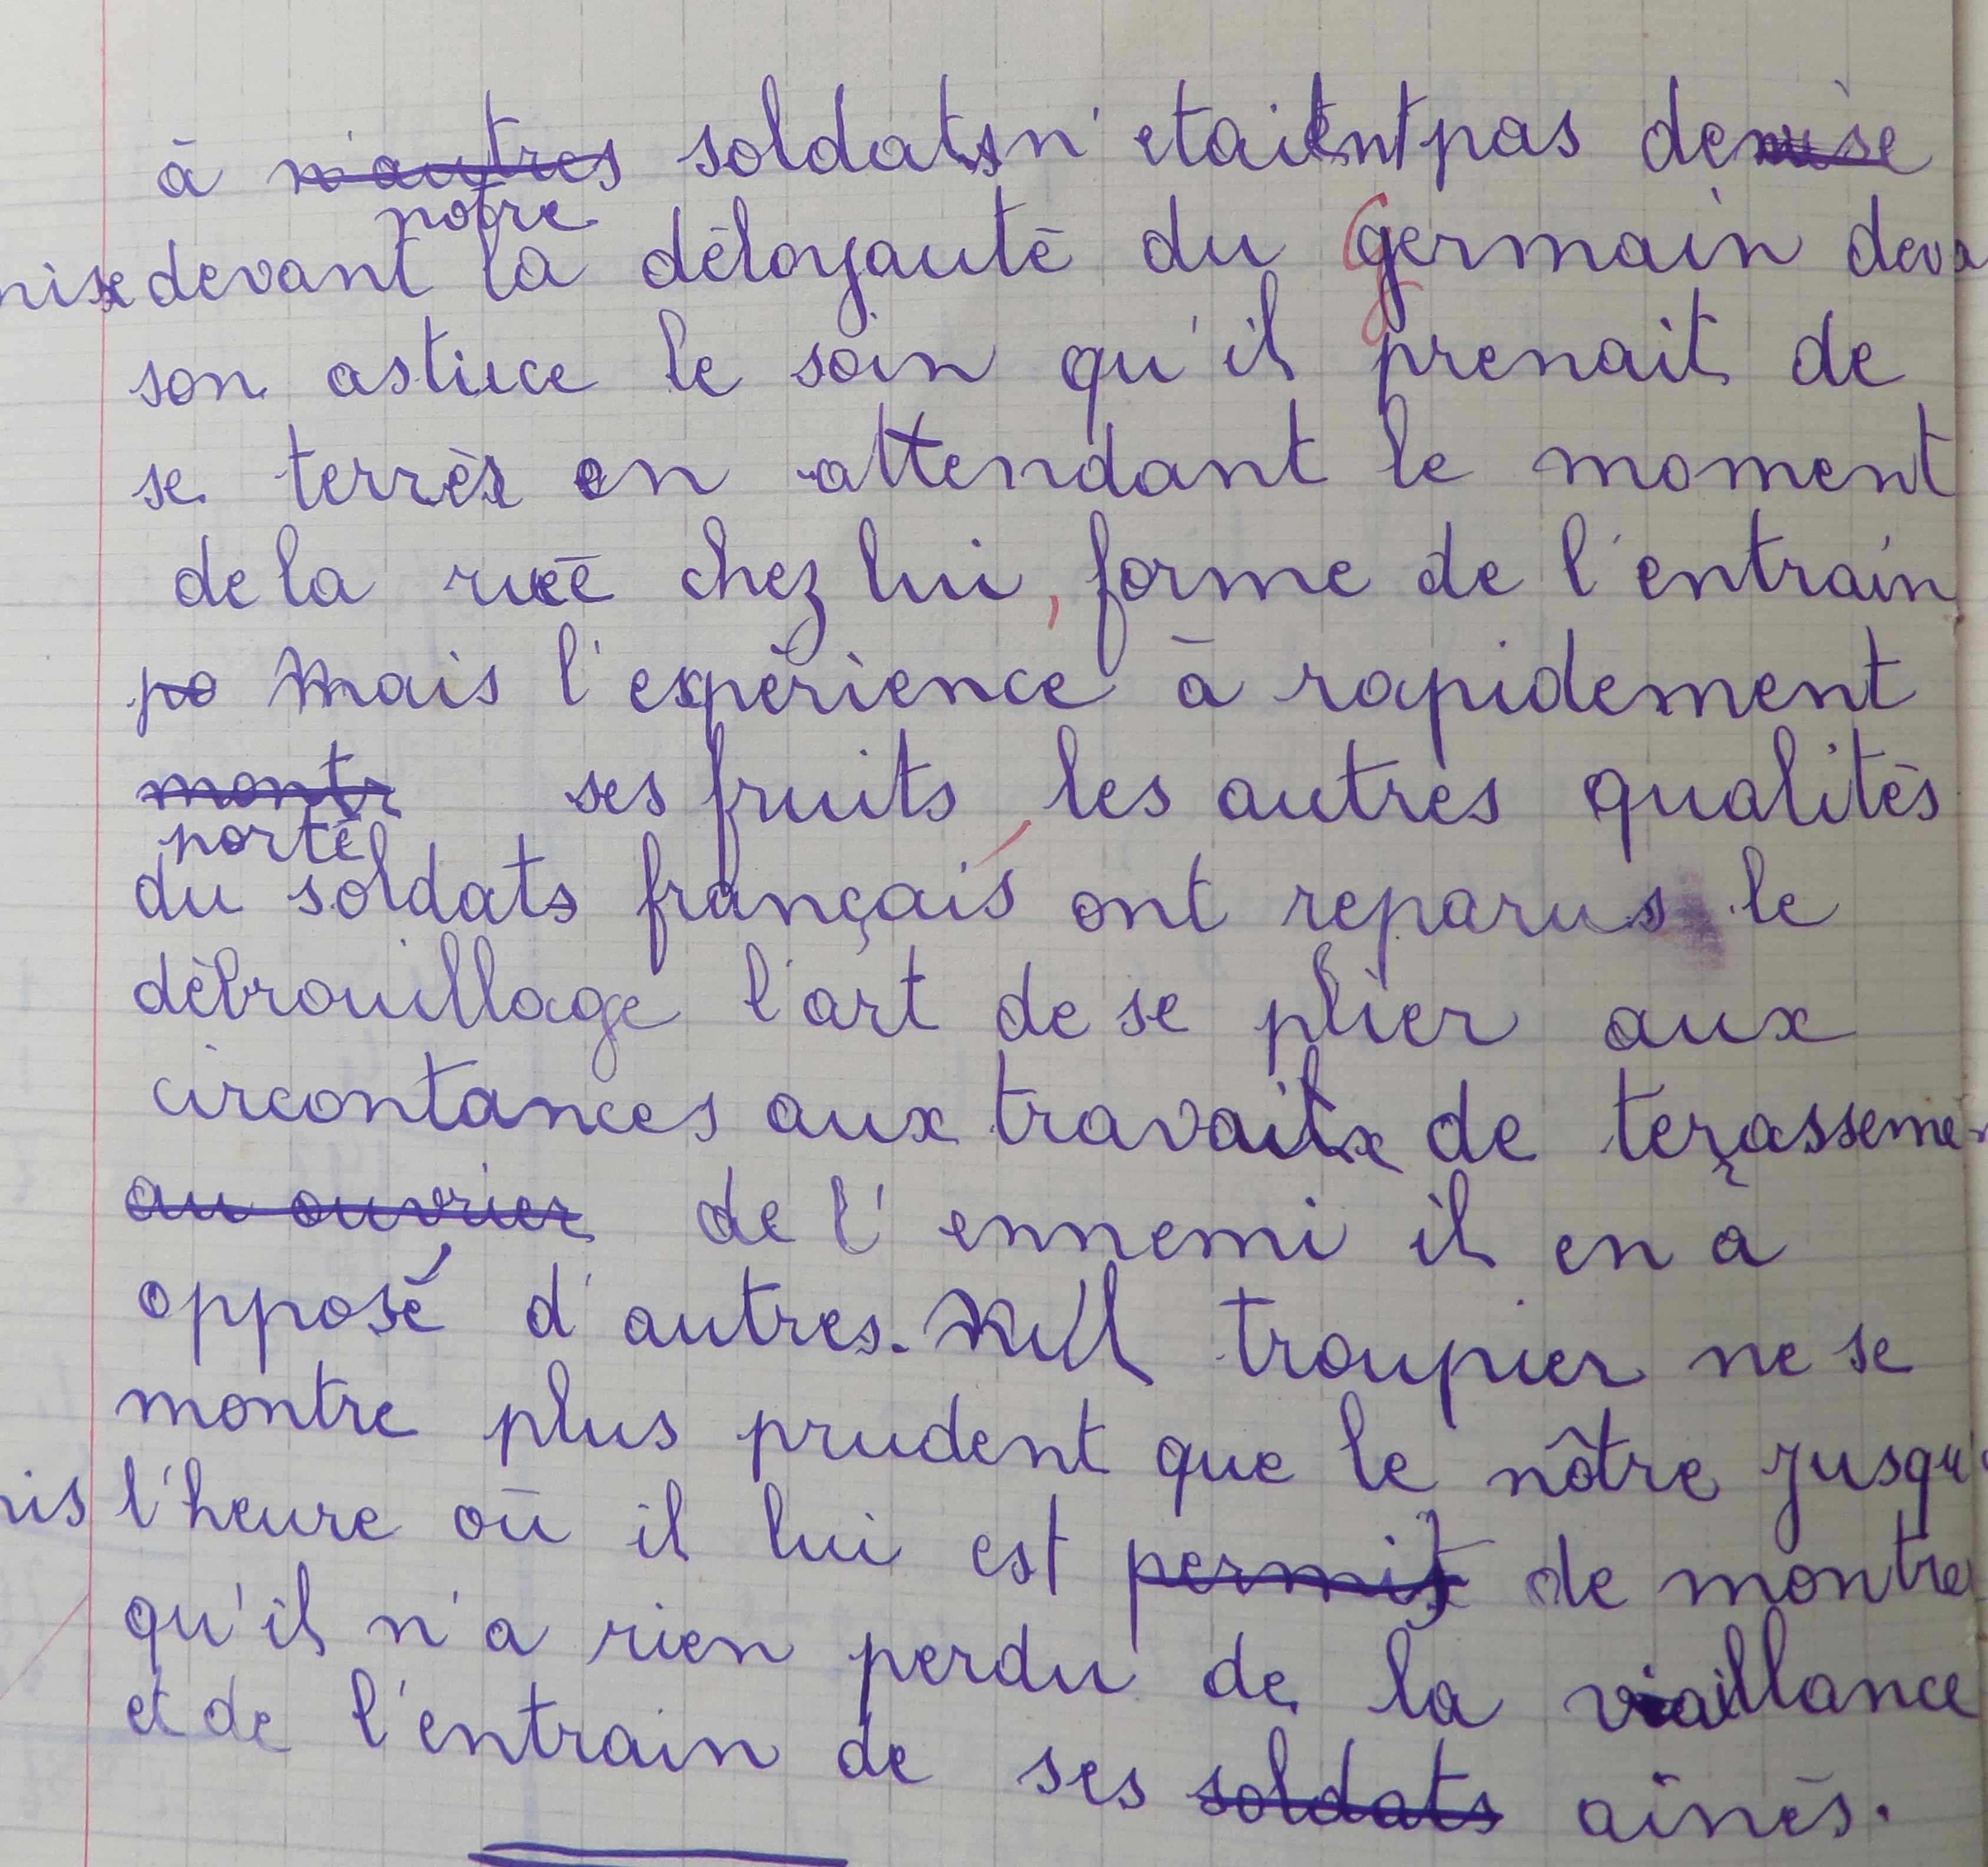 à n'autres soldatsn'etaientpas demise
notre
nisedevant la déloyauté du Germain deva
son astuce le soin qu'il prenait de
se terrèr en attendant le moment
de la rueé chez lui, forme de l'entrain
po Mais l'expérience à rapidement
montr ses fruits, les autres qualités
porté
du soldats français ont reparus le
débrouillage l'art de se plier aux
circontances aux travaux de terassemen
au ouvrier de l'ennemi il en a
opposé d'autres. Null troupier ne se
montre plus prudent que le nôtre jusqu'
nis l'heure où il lui est permis de montre
qu'il n'a rien perdu de la vaillance
et de l'entrain de ses soldats ainés.